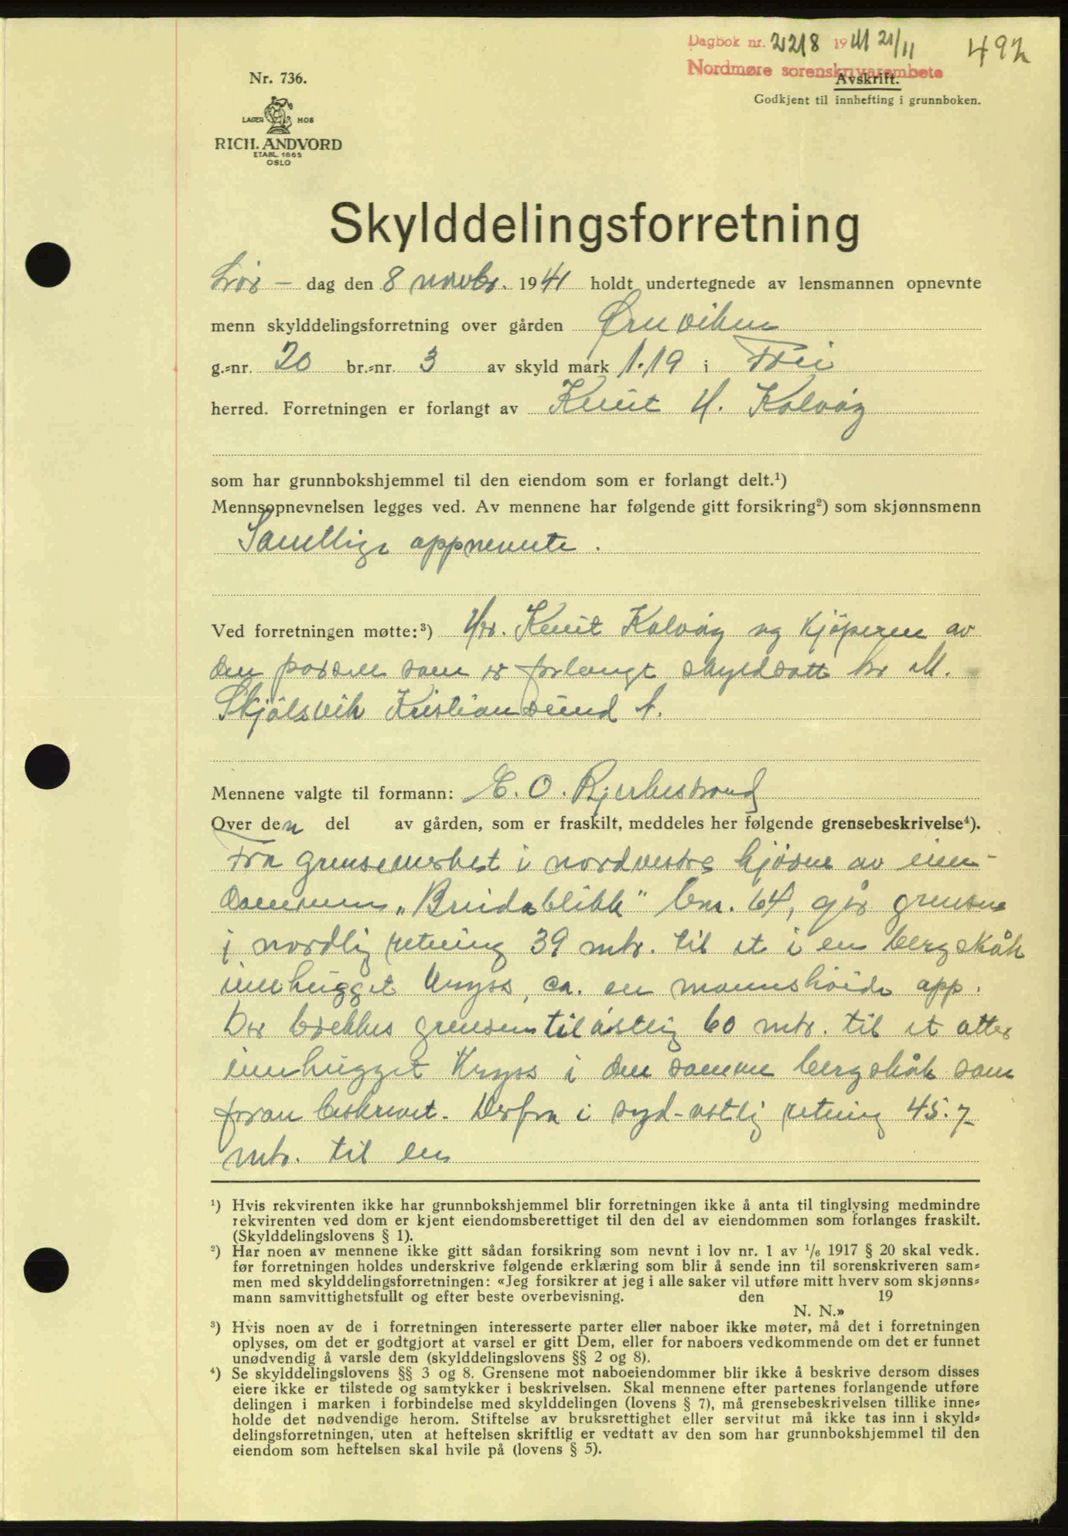 Dagbok nr. 2218 1941 21/11
492
Nordmøre sorenskriverembete
Avskrift.
Godkjent til innhefting i grunnboken.
Nr. 736.
LAGER HOS
RICH. ANDVORD
ETABL. 1865
OSLO
Skylddelingsforretning
Lør- dag den 8 novbr. 1941 holdt undertegnede av lensmannen opnevnte
menn skylddelingsforretning over gården Ørnviken
g.-nr. 20 br.-nr. 3 av skyld mark 1.19 i Frei
herred. Forretningen er forlangt av Knut H. Kalvåg
som har grunnbokshjemmel til den eiendom som er forlangt delt.¹)
Mennsopnevnelsen legges ved. Av mennene har følgende gitt forsikring²) som skjønnsmenn
Samtlige oppnevnte.
Ved forretningen møtte:³) Hr. Knut Kalvåg og kjøperen av
den parsell som er forlangt skyldsatt hr M.
Skjølsvik Kristiansund N.
Mennene valgte til formann: E. O. Bjerkestrand
Over den del av gården, som er fraskilt, meddeles her følgende grensebeskrivelse⁴).
Fra grensemerket i nordvestre hjørne av eien-
dommen „Breidablikk" bnr. 64, går grensen
i nordlig retning 39 mtr. til et i en bergskåk
innhugget kryss, ca. en mannshøide opp.
Der brekkes grensen til østlig 60 mtr. til et atter
innhugget kryss i den samme bergskåk som
foran beskrevet. Derfra i syd-østlig retning 45.7
mtr. til en
¹) Hvis rekvirenten ikke har grunnbokshjemmel blir forretningen ikke å anta til tinglysing medmindre
rekvirenten ved dom er kjent eiendomsberettiget til den del av eiendommen som forlanges fraskilt.
(Skylddelingslovens § 1).
²) Har noen av mennene ikke gitt sådan forsikring som nevnt i lov nr. 1 av 1/6 1917 § 20 skal vedk.
før forretningen holdes underskrive følgende erklæring som blir å sende inn til sorenskriveren sam-
men med skylddelingsforretningen: «Jeg forsikrer at jeg i alle saker vil utføre mitt hverv som skjønns-
mann samvittighetsfullt og efter beste overbevisning. den 19
N. N.»
³) Hvis noen av de i forretningen interesserte parter eller naboer ikke møter, må det i forretningen
oplyses, om det er godtgjort at varsel er gitt Dem, eller for naboers vedkommende om det er funnet
unødvendig å varsle dem (skylddelingslovens §§ 2 og 8).
⁴) Se skylddelingslovens §§ 3 og 8. Grensene mot naboeiendommer blir ikke å beskrive dersom disses
eiere ikke er tilstede og samtykker i beskrivelsen. Skal mennene efter partenes forlangende utføre
delingen i marken i forbindelse med skylddelingen (lovens § 7), må grensebeskrivelsen tillike inne-
holde det nødvendige herom. Stiftelse av bruksrettighet eller servitut må ikke tas inn i skyld-
delingsforretningen, uten at heftelsen skriftlig er vedtatt av den som har grunnbokshjemmel til den
eiendom som heftelsen skal hvile på (lovens § 5).